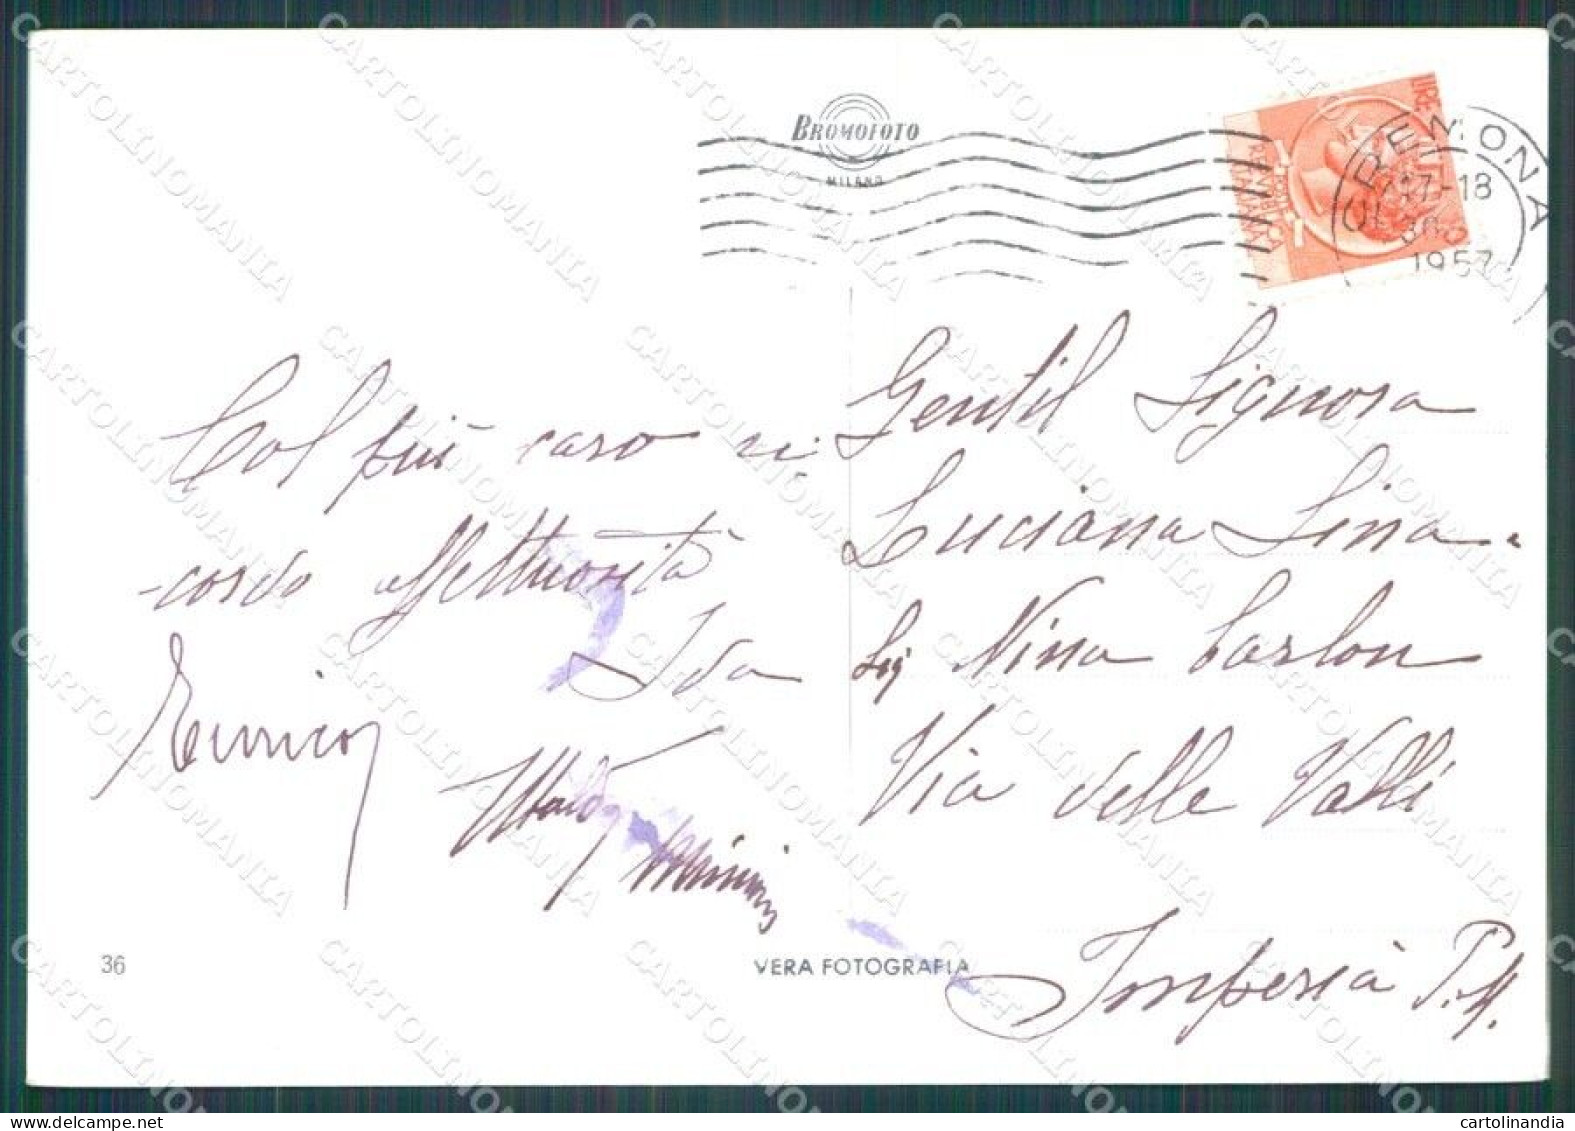 BROMOFOTO
MILANO
CREMONA
17-18
1957
LIRE
Col più caro ri
-cordo affettuosità
Ida
Enrico
Gentil Signora
Luciana Lina
Sig Nina Carlon
Via delle Valli
Imperia P. M.
36
VERA FOTOGRAFIA
CARTOLINOMANIA
cartolinandia